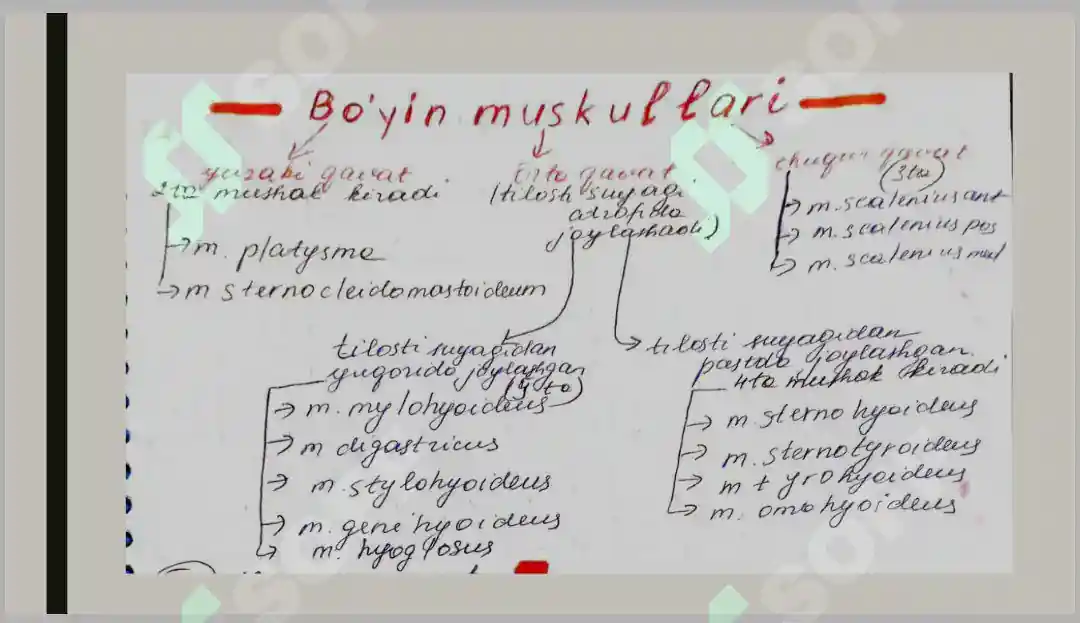 Bo'yin muskullari
yuzaki qavat
2ta mushak kiradi
→ m. platysma
→ m sternocleidomastoideum
o'rta qavat
(tilosti suyagi
atrofida
joylashadi)
chuqur qavat
(3ta)
→ m. scalenius ant
→ m. scalenius pos
→ m. scalenius med
tilosti suyagidan
yuqorida joylashgan
→ m. mylohyoideus
→ m digastricus
→ m. stylohyoideus
→ m. genihyoideus
→ m. hyoglosus
→ tilosti suyagidan
pastda joylashgan.
4ta mushak kiradi
→ m. sternohyoideus
→ m. sternotyroideus
→ m tyrohyoideus
→ m. omohyoideus